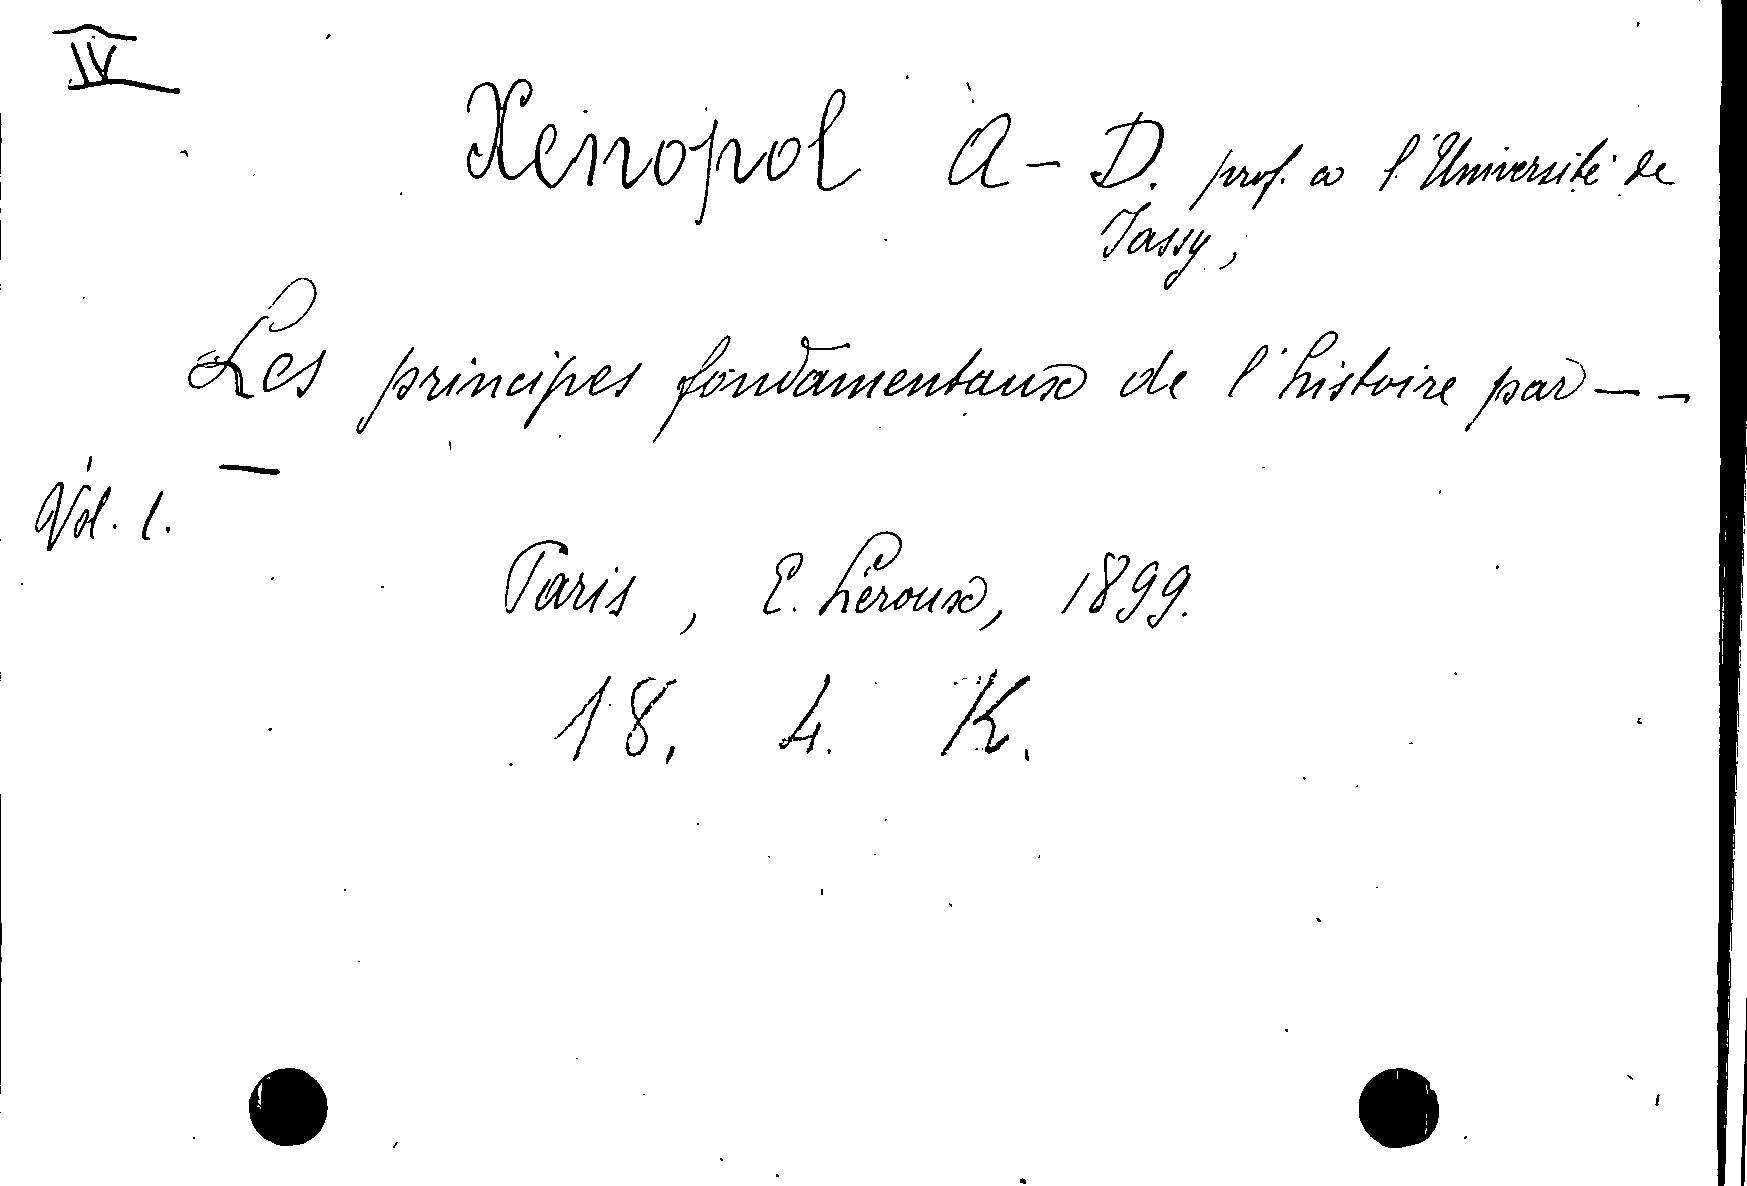 IV
Xenopol A-D. prof. a l'Université de
Jassy,
Les principes fondamentaux de l'histoire par — —
—
Vol. 1.
Paris, E. Léroux, 1899.
18. 4. K.